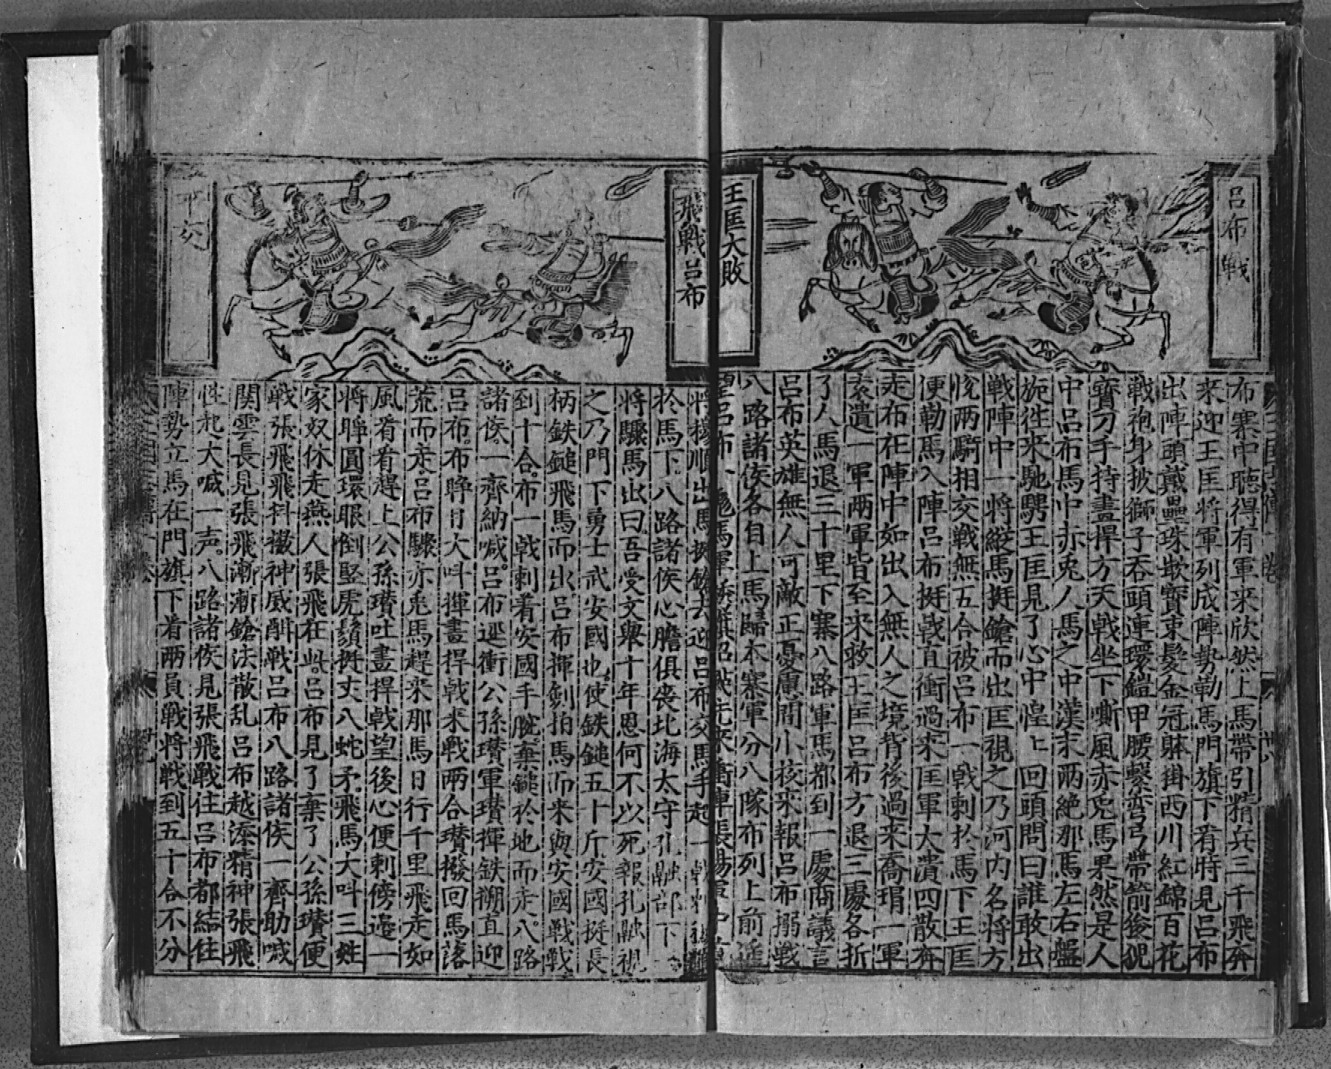 呂布戰
王匡大敗
布寨中聽得有軍來欣然上馬帶引精兵三千飛奔
來迎王匡將軍列成陣勢勒馬門旗下看時見呂布
出陣頭戴壘珠嵌寶束髮金冠躰掛西川紅錦百花
戰袍身披獅子吞頭連環鎧甲腰繫弯弓帶箭狻猊
寶刀手持畫捍方天戟坐下嘶風赤兎馬果然是人
中呂布馬中赤兎人馬之中漢末兩絶那馬左右盤
旋徃來馳騁王匡見了心中惶〻回頭問曰誰敢出
戰陣中一將縱馬挺鎗而出匡視之乃河内名將方
恱兩騎相交戰無五合被呂布一戟刺於馬下王匡
便勒馬入陣呂布挺戟直衝過來匡軍大潰四散奔
走布在陣中如出入無人之境背後過來喬瑁一軍
袁遺一軍兩軍皆至來救王匡呂布方退三處各折
了人馬退三十里下寨八路軍馬都到一處商議言
呂布英雄無人可敵正憂慮間小校來報呂布搦戰
八路諸侯各自上馬歸本寨軍分八隊布列上前遥
望呂布一
飛戰呂布
於馬下八路諸侯心膽俱喪北海太守孔融部下
將驟馬出曰吾受文舉十年恩何不以死報孔融視
之乃門下勇士武安國也使鉄鎚五十斤安國挺長
柄鉄鎚飛馬而出呂布揮劍拍馬而來與安國戰戰
到十合布一戟刺着安國手腕棄鎚於地而走八路
諸侯一齊納喊呂布逕衝公孫瓉軍瓉揮鉄槊直迎
呂布布睜目大呌揮畫捍戟來戰兩合瓉撥回馬落
荒而走呂布驟赤兎馬趕來那馬日行千里飛走如
風看看趕上公孫瓉吐畫捍戟望後心便刺傍邉一
將睜圓環眼倒竪虎鬚挺丈八蛇矛飛馬大呌三姓
家奴休走燕人張飛在此呂布見了棄了公孫瓉便
戰張飛飛抖擻神威酣戰呂布八路諸侯一齊助喊
関雲長見張飛漸漸鎗法散乱呂布越添精神張飛
性起大喊一声八路諸侯見張飛戰住呂布都結住
陣勢立馬在門旗下看兩員戰將戰到五十合不分